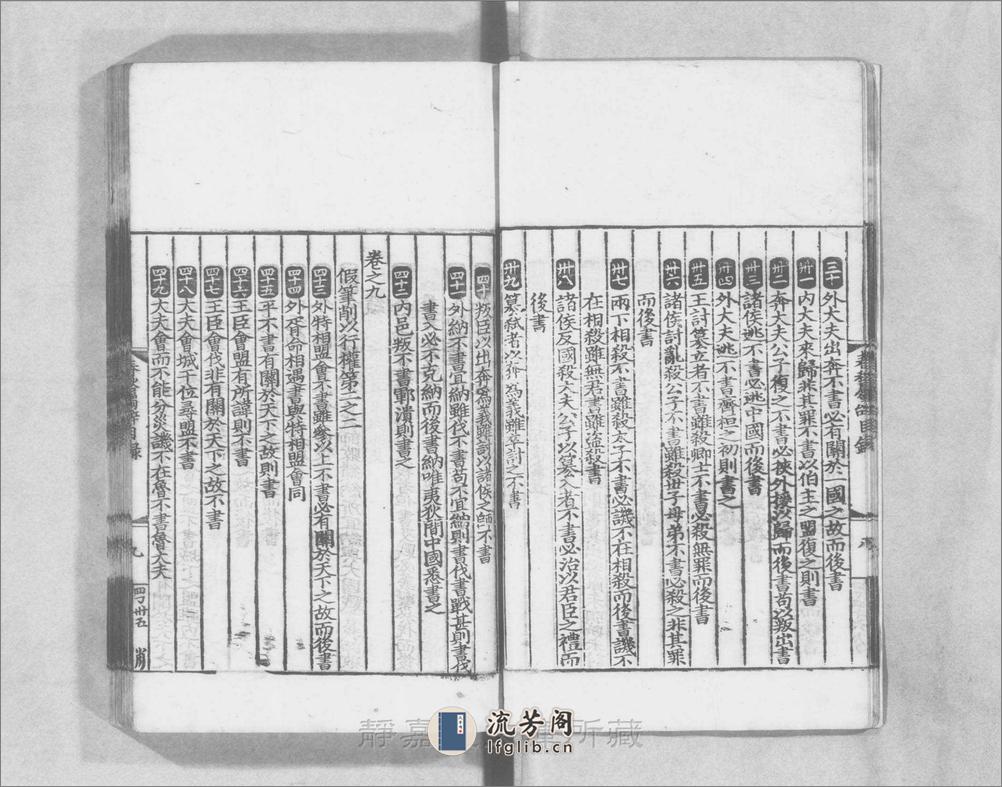 三十 外大夫出奔不書必有關於一國之故而後書
卅一 內大夫來歸非其罪不書以伯主之盟復之則書
卅二 奔大夫公子復之不書必挾外援以歸而後書苟以叛出書
卅三 諸侯逃不書必逃中國而後書
卅四 外大夫逃不書齊桓之初則書之
卅五 王討篡立者不書雖殺卿士不書必殺無罪而後書
卅六 諸侯討亂殺公子不書雖殺世子母弟不書必殺之非其罪
而後書
卅七 兩下相殺不書雖殺太子不書必譏不在相殺而後書譏不
在相殺雖無君書雖盜殺書
卅八 諸侯反國殺大夫公子以篡入者不書必治以君臣之禮而
後書
卅九 篡弒者以奔為義雖卒討之不書
四十 叛臣以出奔為義雖討以諸侯之師不書
四十一 外納不書宜納雖伐不書苟不宜納則書伐書戰甚則書伐
書入必不克納而後書納唯夷狄間中國悉書之
四十二 內邑叛不書鄆潰則書之
卷之九
假筆削以行權第二之三
四十三 外特相盟會不書雖參以上不書必有關於天下之故而後書
四十四 外胥命相遇書與特相盟會同
四十五 平不書有關於天下之故則書
四十六 王臣會盟有所諱則不書
四十七 王臣會伐非有關於天下之故不書
四十八 大夫會城于位尋盟不書
四十九 大夫會而不能分災譏不在魯不書魯大夫
九
四ノ卅五
靜嘉
所藏
流芳阁
lfglib.cn